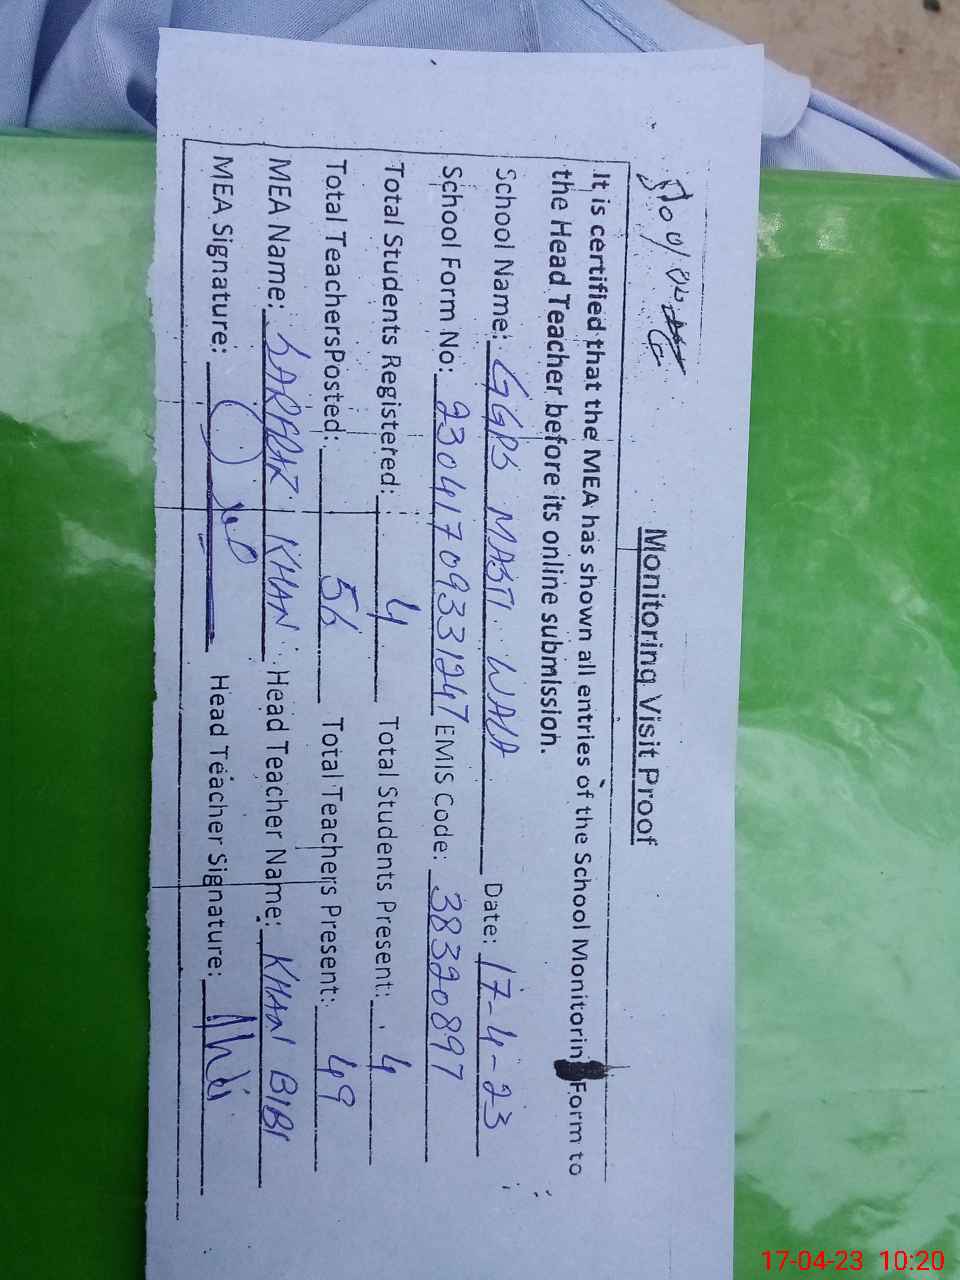 Monitoring Visit Proof
It is certified that the MEA has shown all entries of the School Monitorin Form to
the Head Teacher before its online submission.
School Name: GGPS MASTI WALA Date: 17-4-23
School Form No: 23041709331247 EMIS Code: 38320897
Total Students Registered: 4 Total Students Present: 4
Total TeachersPosted: 56 Total Teachers Present: 49
MEA Name: SARADAR KHAN Head Teacher Name: KHAN BIBI
MEA Signature: Head Teacher Signature:
17-04-23 10:20